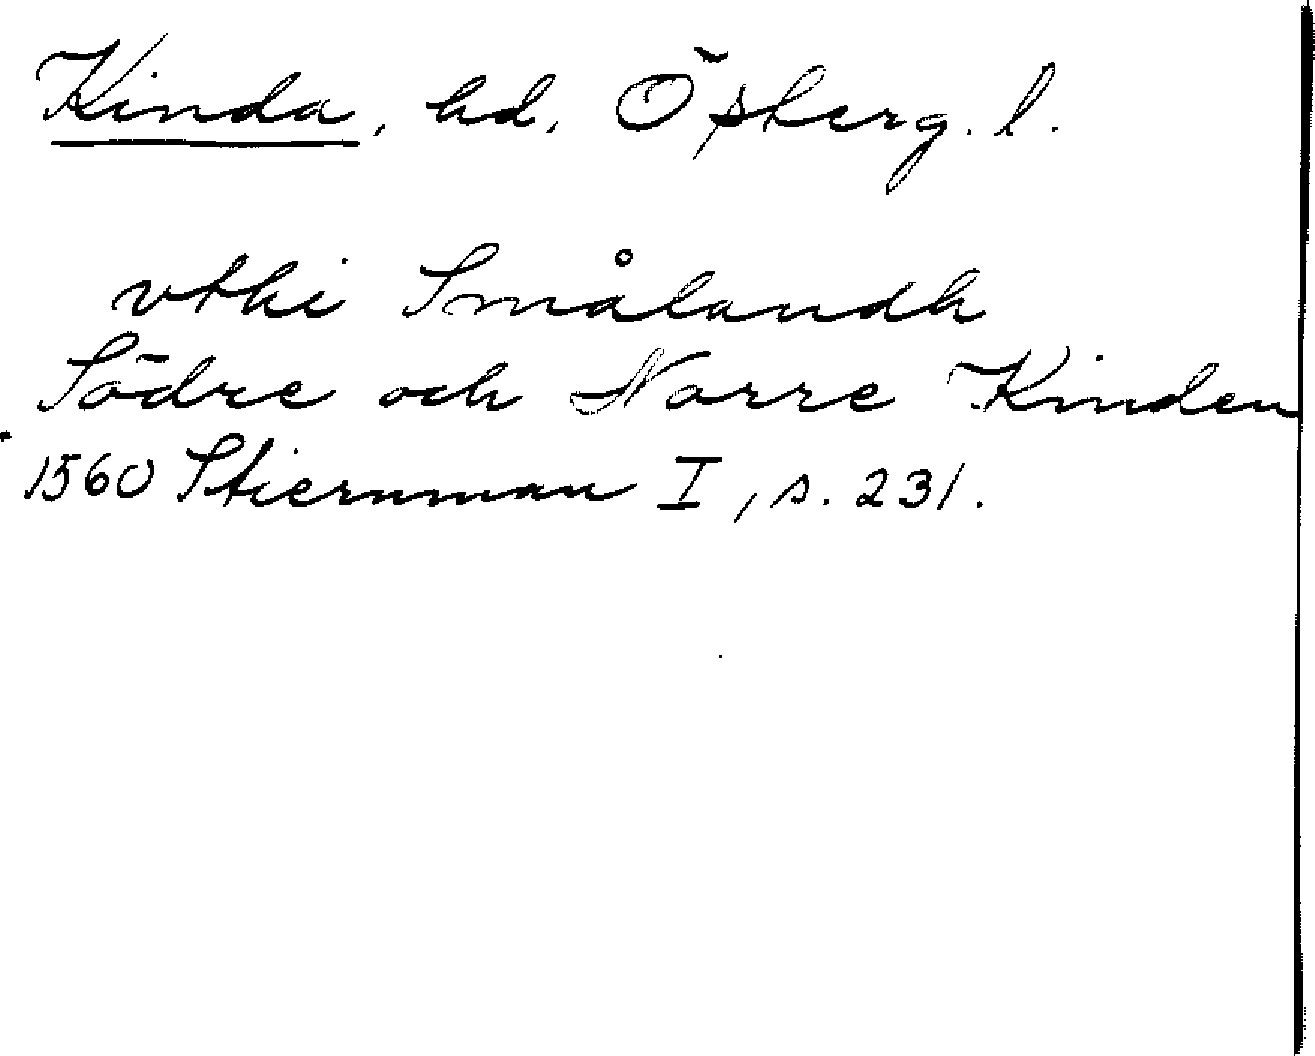 Kinda, hd. Östberg. l.
vthi Smålandh
Södre och Norre Kinden
1560 Stiernman I, s. 231.